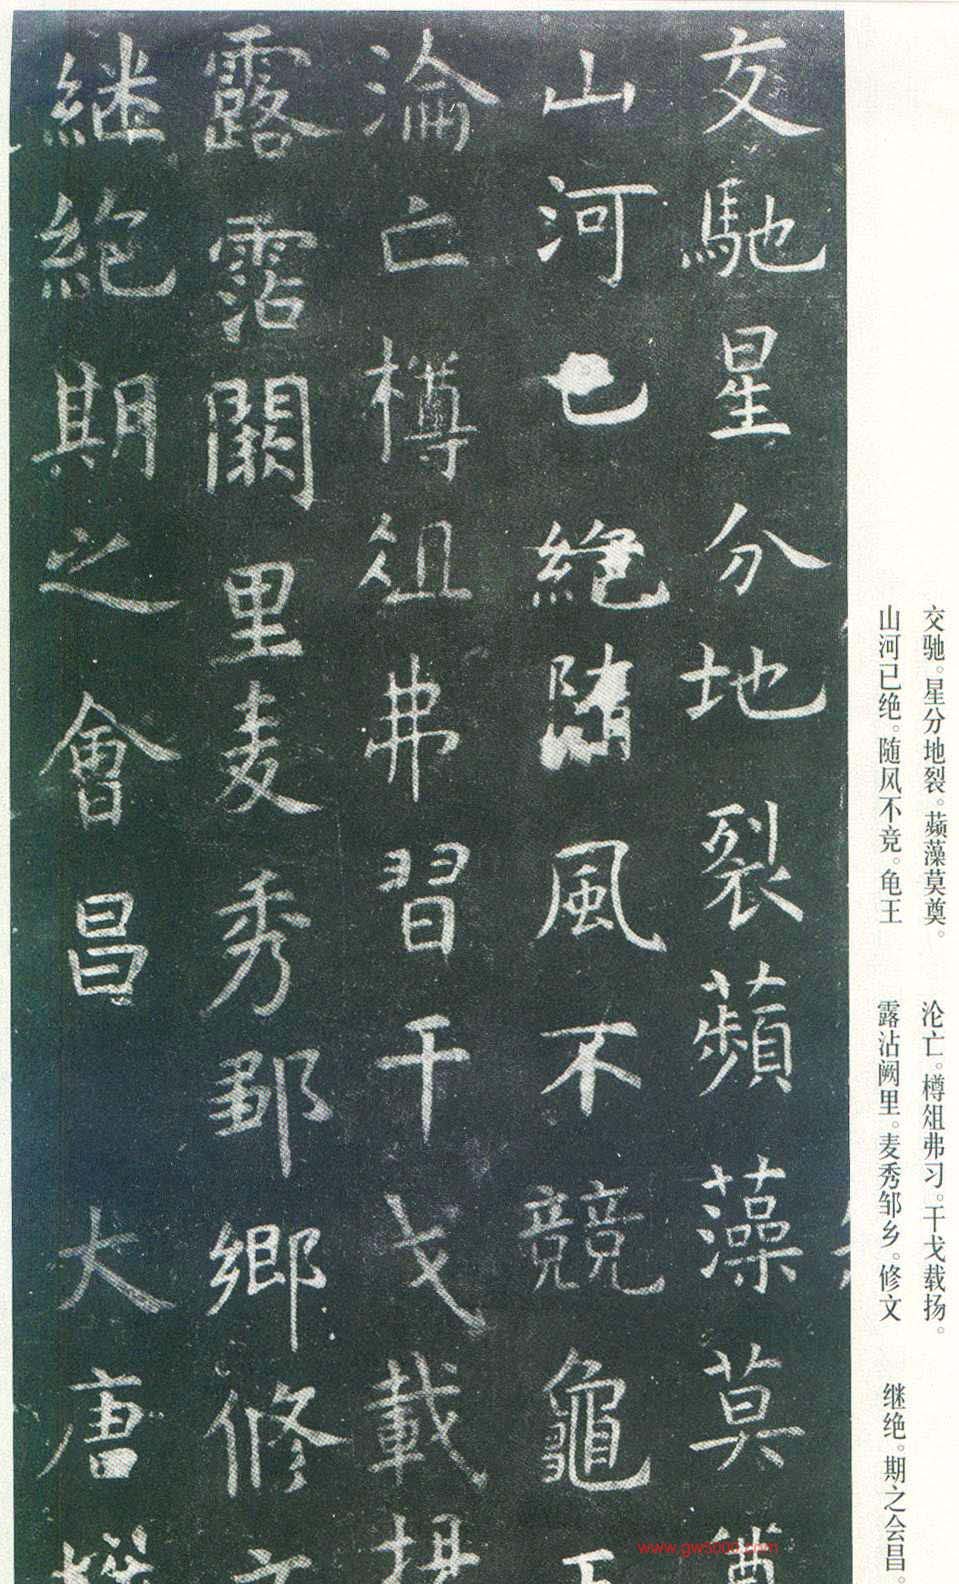 交馳星分地裂蘋藻莫奠
山河已絶隨風不競龜王
淪亡樽俎弗習干戈載揚
露霑闕里麦秀鄒鄉修文
継絶期之會昌 大唐
交驰。星分地裂。蘋藻莫奠。
山河已绝。随风不竞。龟王
沦亡。樽俎弗习。干戈载扬。
露沾阙里。麦秀邹乡。修文
继绝。期之会昌。
www.gw5000.com